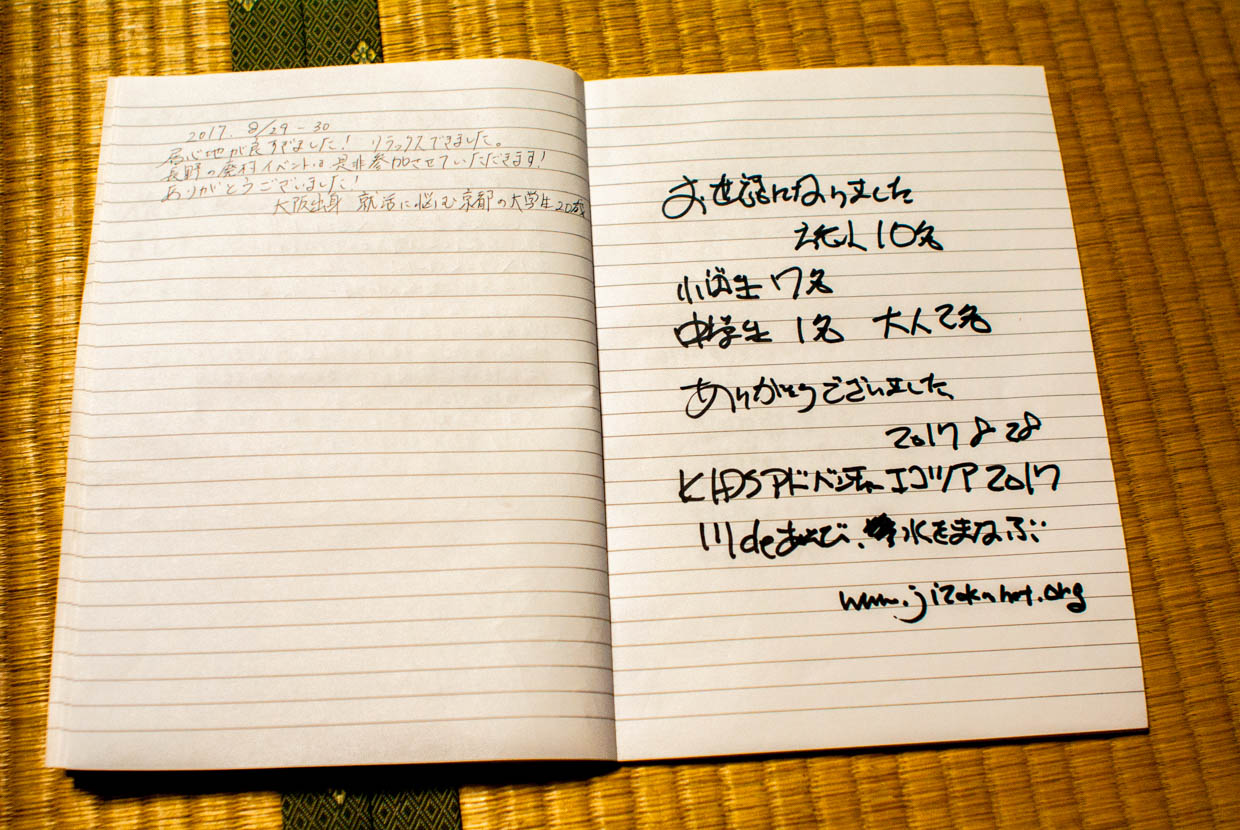 2017. 8/29-30
居心地が良すぎました! リラックスできました。
長野の廃村イベントは是非参加させていただきます!
ありがとうございました!
大阪出身 就活に悩む京都の大学生20歳
お世話になりました
10名
小学生 7名
中学生 1名 大人2名
ありがとうございました
2017 8 28
KIDSアドベンチャーエコツアア 2017
川deあそび、水をまなぶ